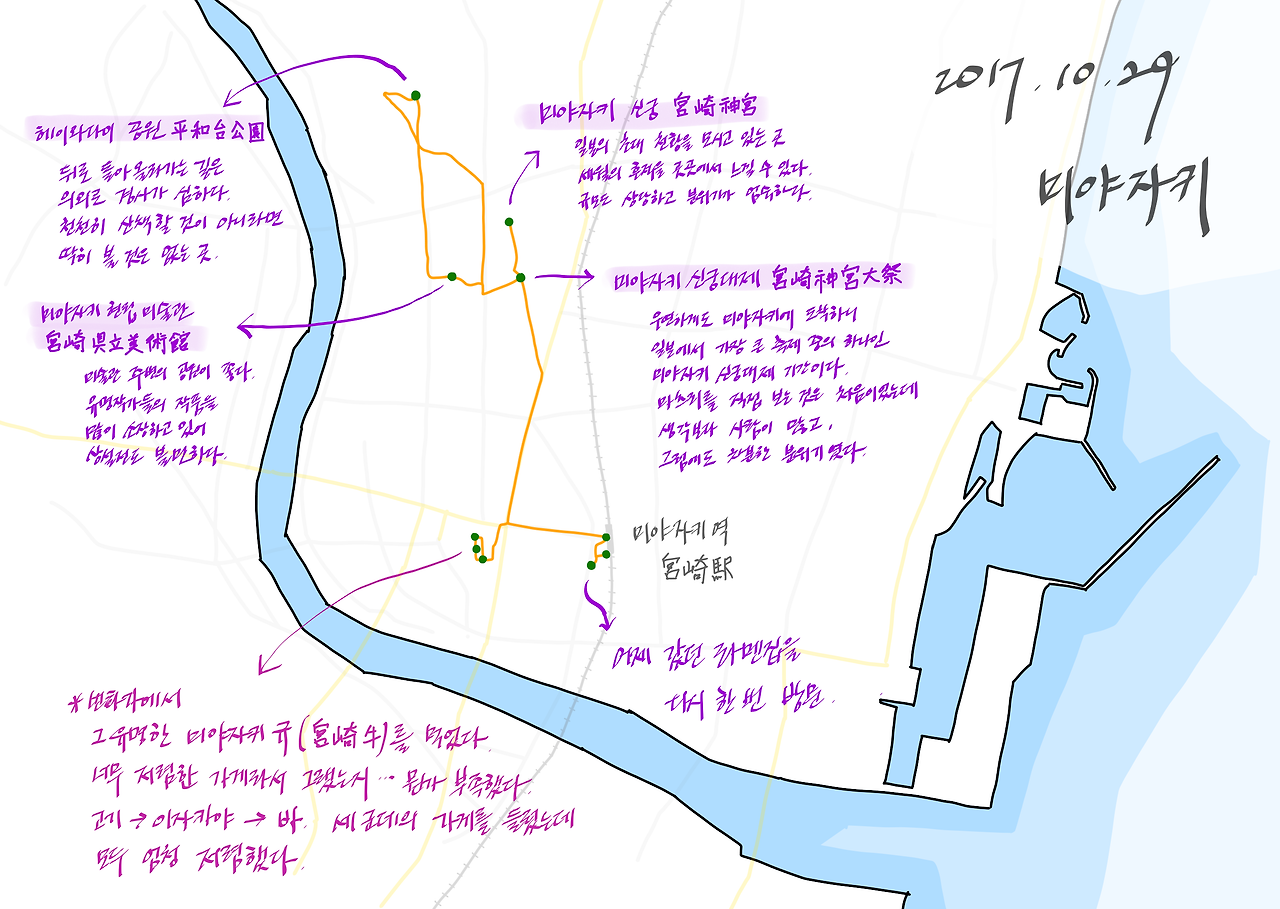 2017.10.29
미야자키
헤이와다이 공원 平和台公園
뒤로 돌아 올라가는 길은
의외로 경사가 심하다.
천천히 산책할 것이 아니라면
딱히 볼 것은 없는 곳.
미야자키 신궁 宮崎神宮
일본의 초대 천황을 모시고 있는 곳
세월의 흔적을 곳곳에서 느낄 수 있다.
규모도 상당하고 분위기가 엄숙하다.
미야자키 신궁대제 宮崎神宮大祭
우연하게도 미야자키에 도착하니
일본에서 가장 큰 축제 중의 하나인
미야자키 신궁대제 기간이다.
마츠리를 직접 보는 것은 처음이었는데
생각보다 사람이 많고,
그럼에도 차분한 분위기였다.
미야자키 현립 미술관
宮崎県立美術館
미술관 주변의 공원이 좋다.
유명작가들의 작품을
많이 소장하고 있어
상설전도 볼만하다.
미야자키 역
宮崎駅
어제 갔던 라멘집을
다시 한 번 방문.
*번화가에서
그 유명한 미야자키 규(宮崎牛)를 먹었다.
너무 저렴한 가게라서 그랬는지… 뭔가 부족했다.
고기 → 이자카야 → 바. 세 군데의 가게를 들렀는데
모두 엄청 저렴했다.